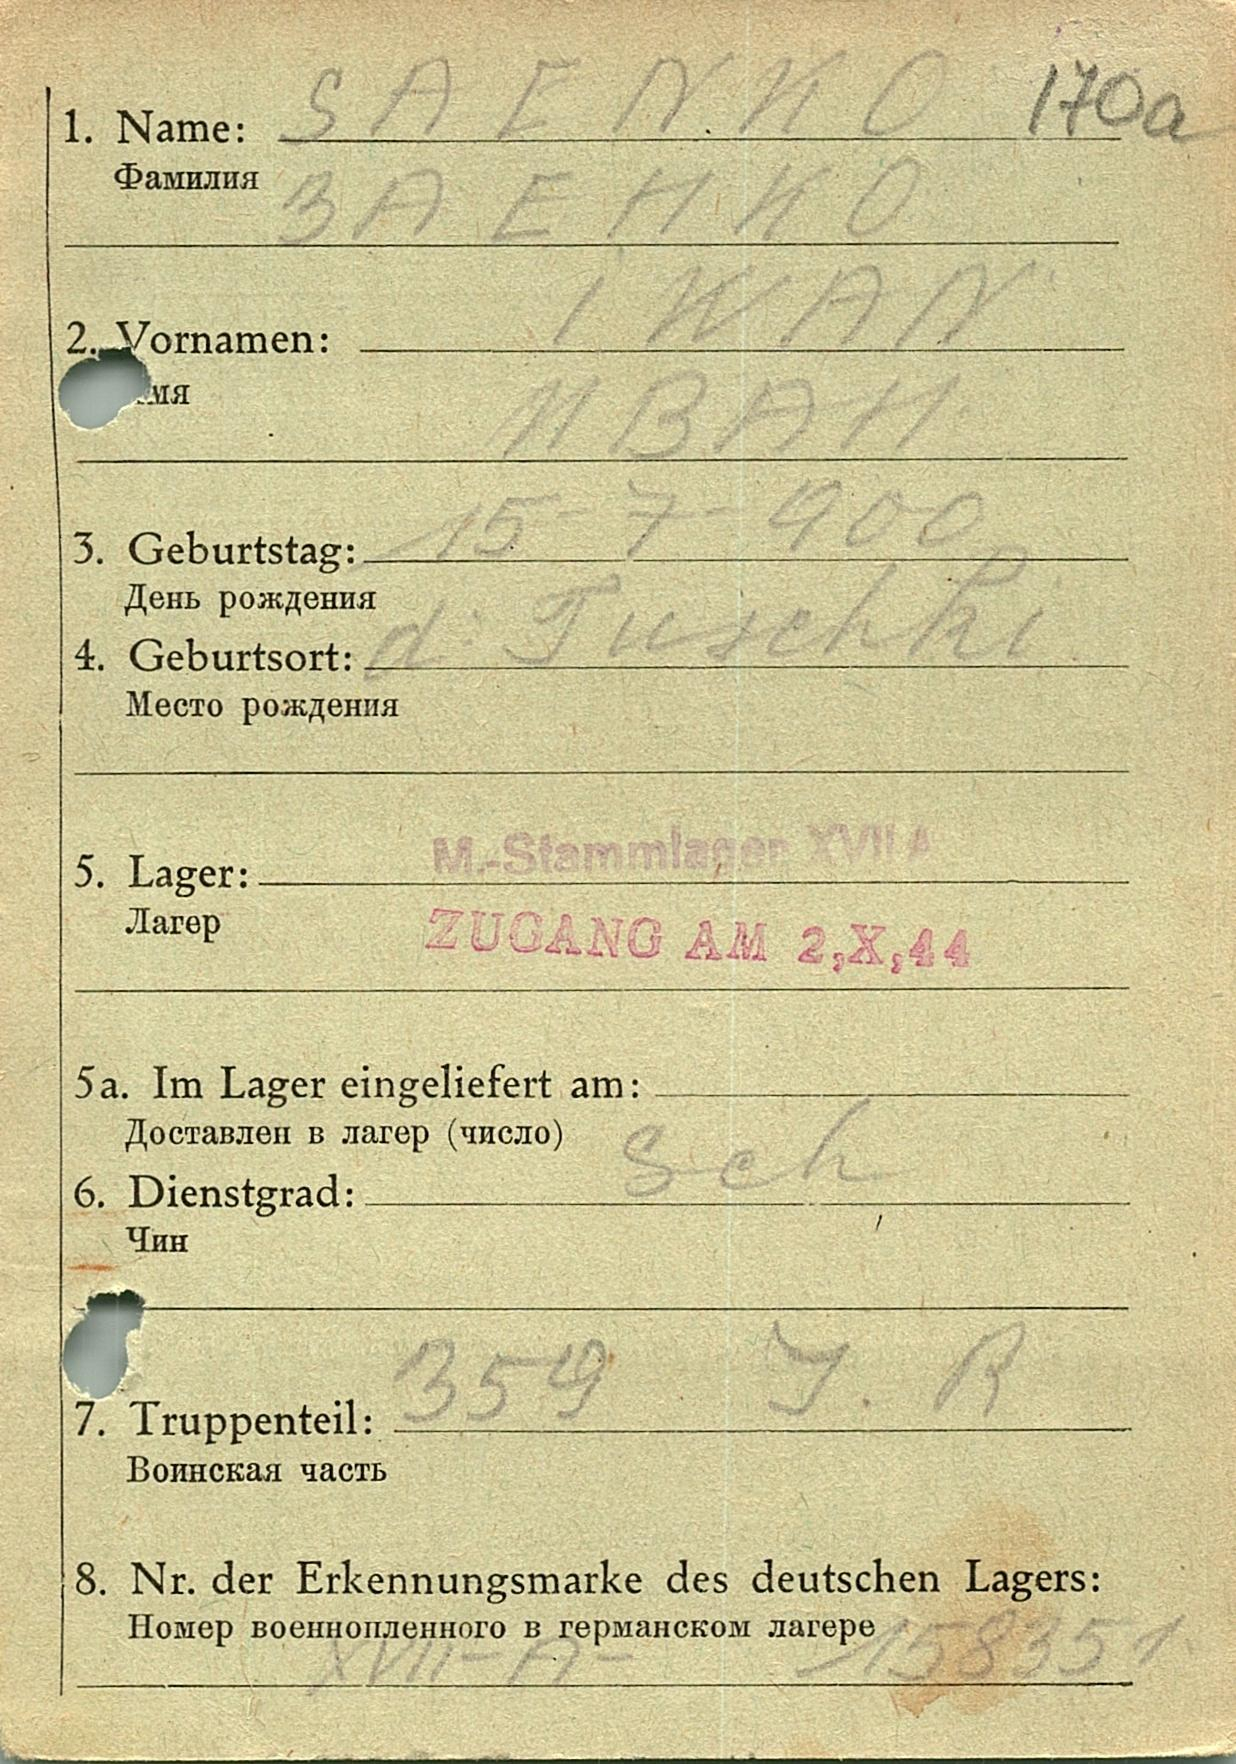 170a
1. Name: SAENKO
Фамилия
ЗАЕНКО
2. Vornamen: IWAN
мя
ИВАН
3. Geburtstag: 15-7-900
День рождения
4. Geburtsort: d: Tuschki
Место рождения
5. Lager: M.-Stammlager XVII A
Лагер
ZUGANG AM 2,X,44
5a. Im Lager eingeliefert am:
Доставлен в лагер (число)
6. Dienstgrad: Sch
Чин
7. Truppenteil: 359 J. R
Воинская часть
8. Nr. der Erkennungsmarke des deutschen Lagers:
Номер военнопленного в германском лагере
XVII-A- 158351.